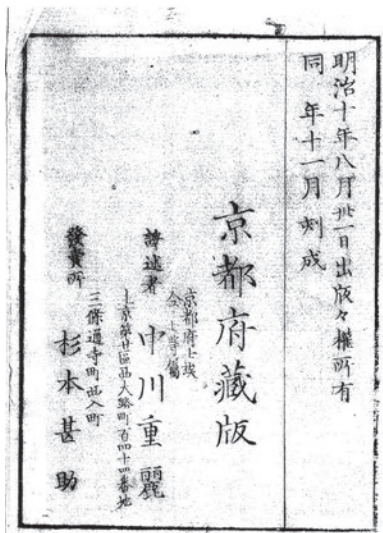 明治十年八月卅一日出版々權所有
同 年十一月刻成
京都府藏版
京都府士族
譯述者 中川重麗
上京第廿區西大路町百四十四番地
三條通寺町西入町
發賣所 杉本甚助